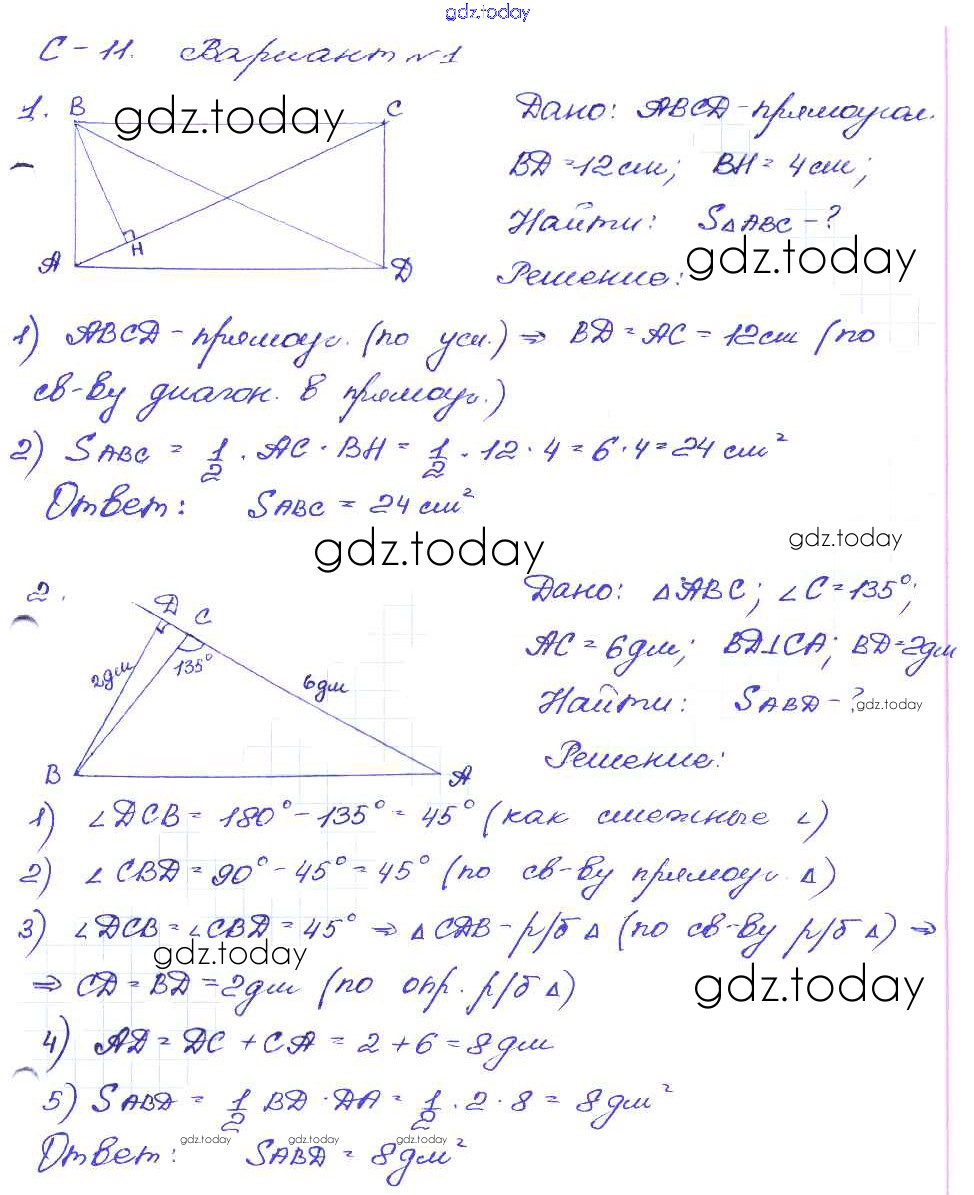 gdz.today
С-11. Вариант №1
1. B C
gdz.today
A H D
Дано: ABCD-прямоугол.
BD=12см; BH=4см;
Найти: S△ABC-?
gdz.today
Решение:
1) ABCD-прямоуг. (по усл.) ⇒ BD=AC=12см (по
св-ву диагон. в прямоуг.)
2) SABC = 1/2 · AC · BH = 1/2 · 12 · 4 = 6 · 4 = 24 см²
Ответ: SABC = 24 см²
gdz.today
gdz.today
2. D C
2дм 135° 6дм
B A
Дано: △ABC; ∠C=135°;
AC=6дм; BD⊥CA; BD=2дм
Найти: SABD-?
gdz.today
Решение:
1) ∠DCB = 180° - 135° = 45° (как смежные ∠)
2) ∠CBD = 90° - 45° = 45° (по св-ву прямоуг. △)
3) ∠DCB = ∠CBD = 45° ⇒ △CDB - р/б △ (по св-ву р/б △) ⇒
gdz.today
⇒ CD = BD = 2дм (по опр. р/б △)
gdz.today
4) AD = DC + CA = 2 + 6 = 8 дм
5) SABD = 1/2 BD · DA = 1/2 · 2 · 8 = 8 дм²
gdz.today gdz.today gdz.today
Ответ: SABD = 8 дм²